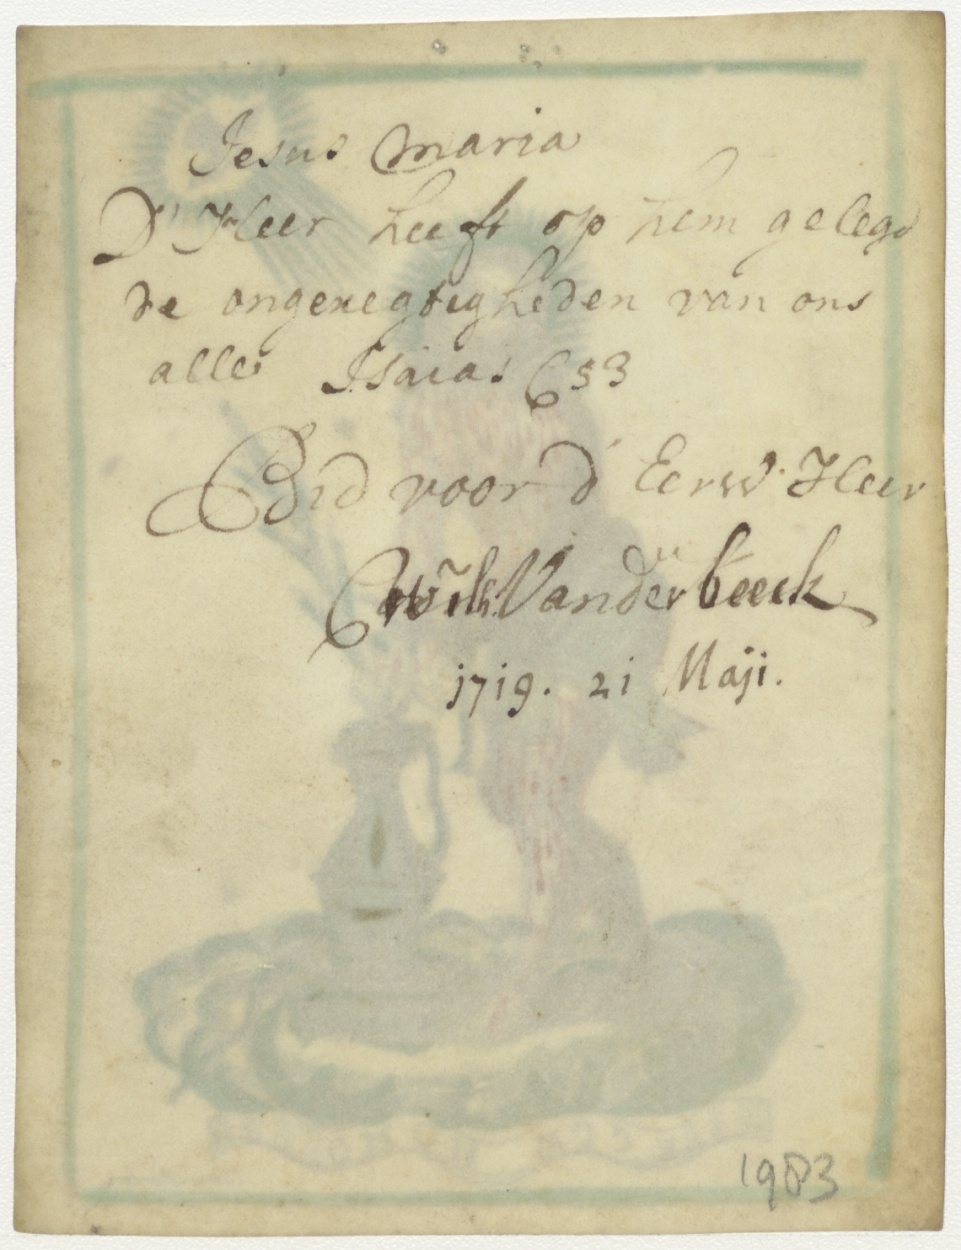 Jesus Maria
D' Heer heeft op hem gelegd
de ongeregtigheden van ons
alle Isaias C 53
Bid voor d' Eerw. Heer
Vanderbeeck
1719. 21 Maji.
1983